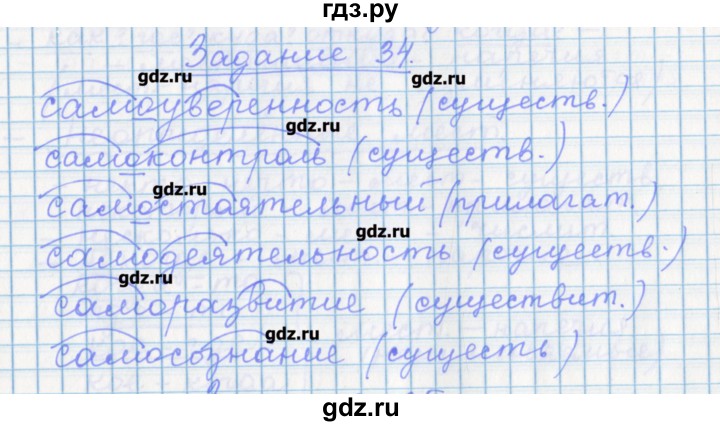 гдз.ру
Задание 34.
gdz.ru
gdz.ru
самоуверенность (существ.)
gdz.ru
самоконтроль (существ.)
gdz.ru
самостоятельный (прилагат.)
gdz.ru
самодеятельность (существ.)
gdz.ru
саморазвитие (существит.)
gdz.ru
самосознание (существ)
gdz.ru